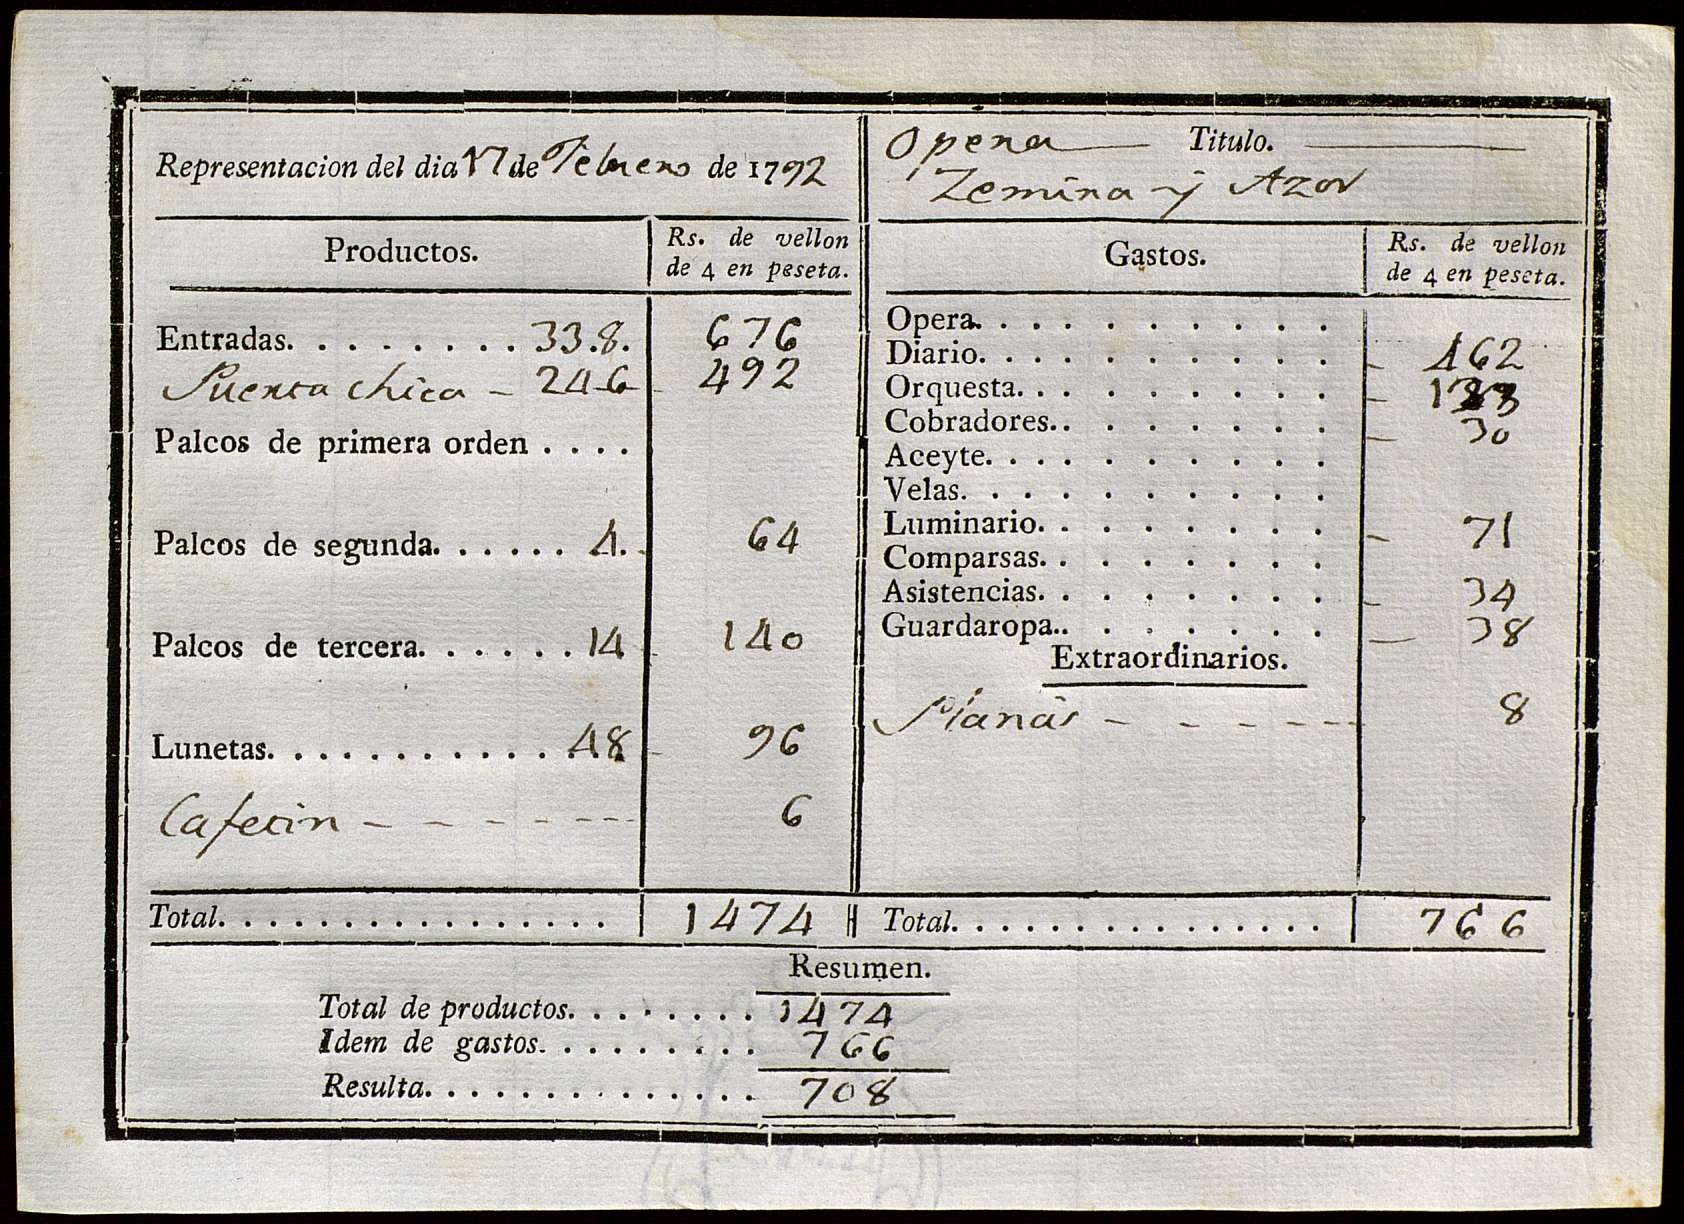 Representacion del dia 17 de Febrero de 1792
Opera Titulo.
Zemira y Azor
Productos. Rs. de vellon de 4 en peseta.
Entradas. . . . . . . . 338. 676
Puerta chica - 246 492
Palcos de primera orden . . . .
Palcos de segunda. . . . . . 4. 64
Palcos de tercera. . . . . . 14 140
Lunetas. . . . . . . . . . . 48 96
Cafetin - - - - - - 6
Total. . . . . . . . . . . . . . . . 1474
Gastos. Rs. de vellon de 4 en peseta.
Opera. . . . . . . . . . .
Diario. . . . . . . . . . . 462
Orquesta. . . . . . . . . 123
Cobradores. . . . . . . . 30
Aceyte. . . . . . . . . .
Velas. . . . . . . . . . .
Luminario. . . . . . . . 71
Comparsas. . . . . . . .
Asistencias. . . . . . . . 34
Guardaropa. . . . . . . . 38
Extraordinarios.
8
Total. . . . . . . . . . . . . . . . 766
Resumen.
Total de productos. . . . . . . . 1474
Idem de gastos. . . . . . . . . 766
Resulta. . . . . . . . . . . . . . 708